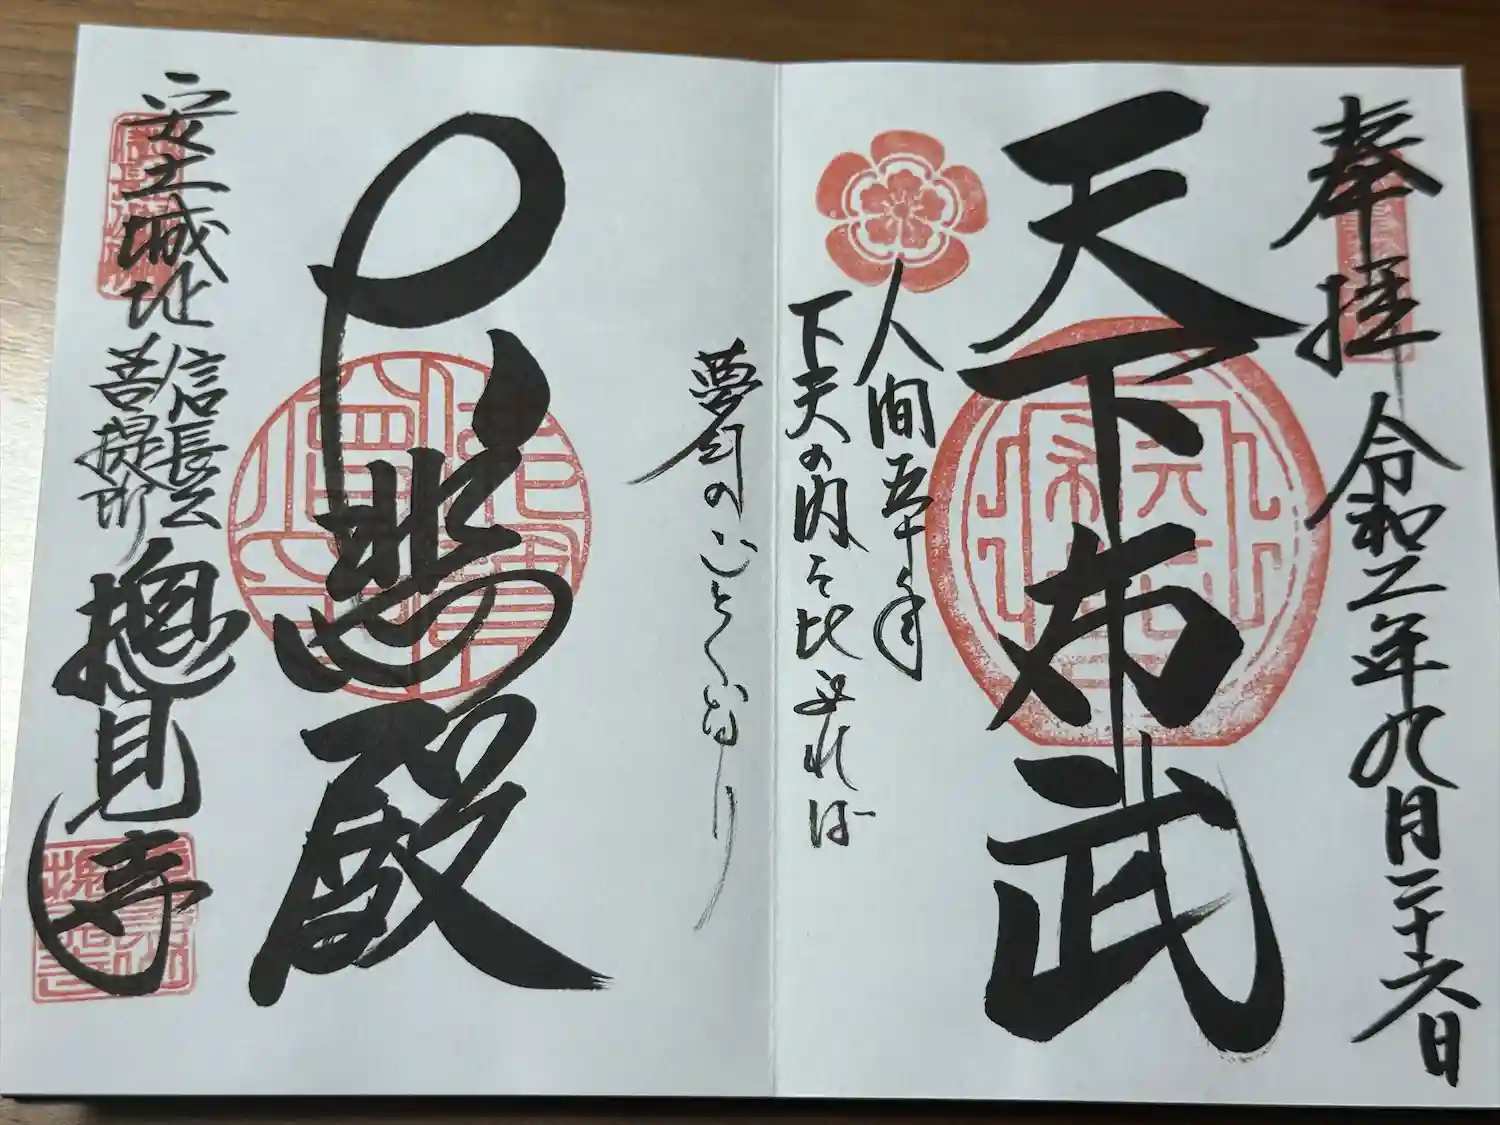 奉拝
令和二年九月二十六日
天下布武
人間五十年
下天の内を比ぶれば
夢幻のごとくなり
心照殿
安土城址
信長公
菩提所
摠見寺